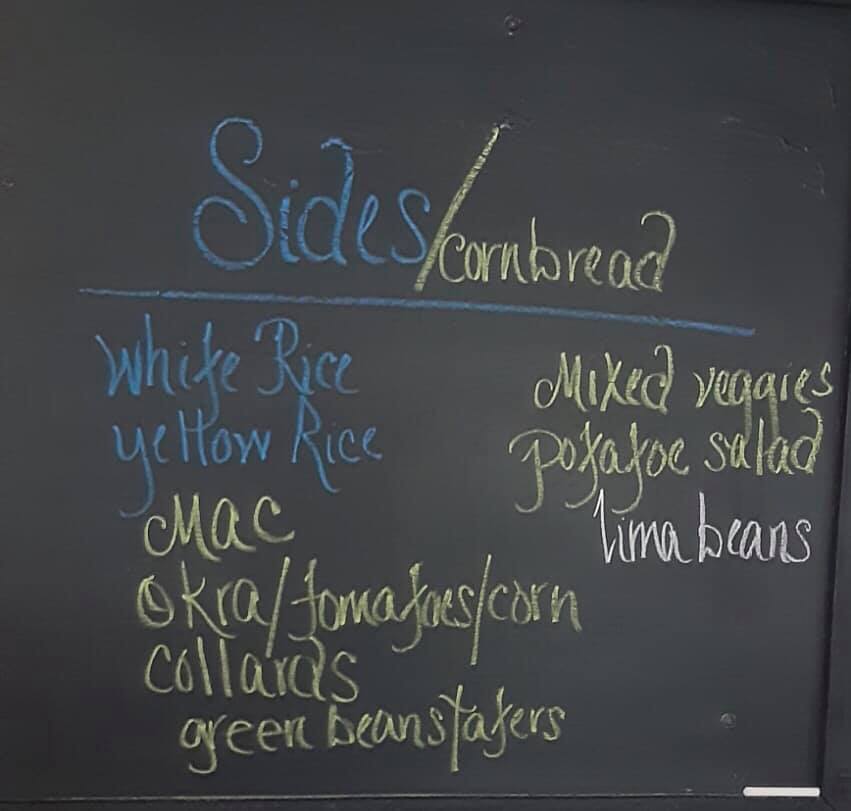 Sides/cornbread
White Rice
yellow Rice
Mac
Okra/tomatoes/corn
collards
green beans/taters
Mixed veggies
potatoe salad
lima beans